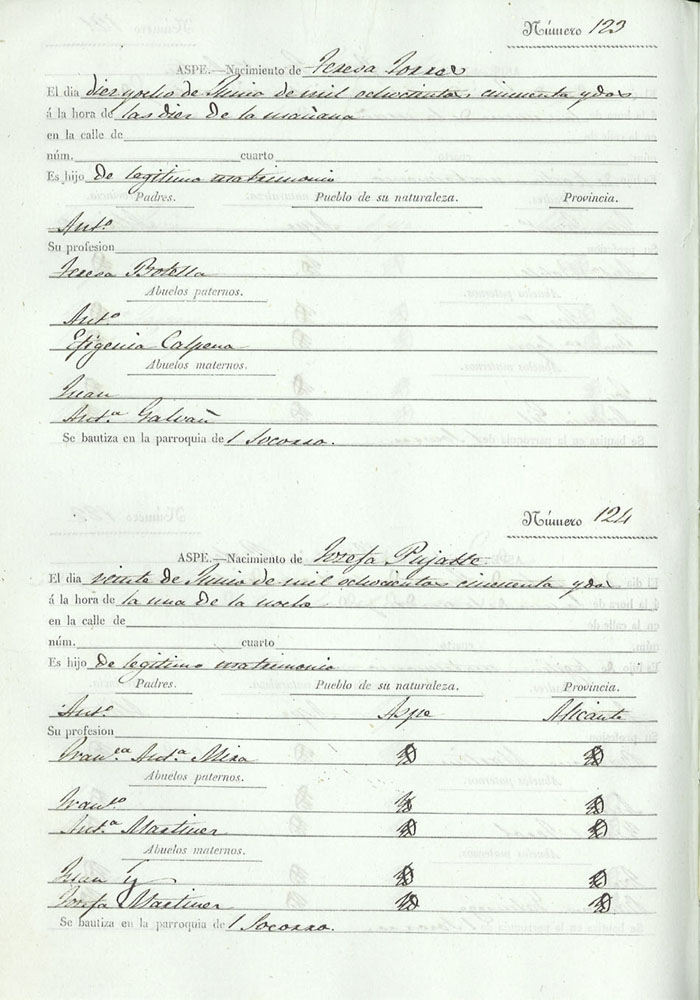 Número 123
ASPE.—Nacimiento de Teresa Torres
El dia diez y ocho de Junio de mil ochocientos cincuenta y dos
á la hora de las diez de la mañana
en la calle de
núm. cuarto
Es hijo de legitimo matrimonio
Padres. Pueblo de su naturaleza. Provincia.
Ant.º
Su profesion
Teresa Botella
Abuelos paternos.
Ant.º
Efigenia Calpena
Abuelos maternos.
Juan
Ant.ª Galvañ
Se bautiza en la parroquia de l Socorro.
Número 124
ASPE.—Nacimiento de Jozefa Pujalte.
El dia veinte de Junio de mil ochocientos cincuenta y dos
á la hora de la una de la noche
en la calle de
núm. cuarto
Es hijo de legitimo matrimonio
Padres. Pueblo de su naturaleza. Provincia.
Ant.º Aspe Alicante
Su profesion
Fran.ca Ant.ª Mira
Abuelos paternos.
Fran.co
Ant.ª Martinez
Abuelos maternos.
Juan y
Jozefa Martinez
Se bautiza en la parroquia de l Socorro.